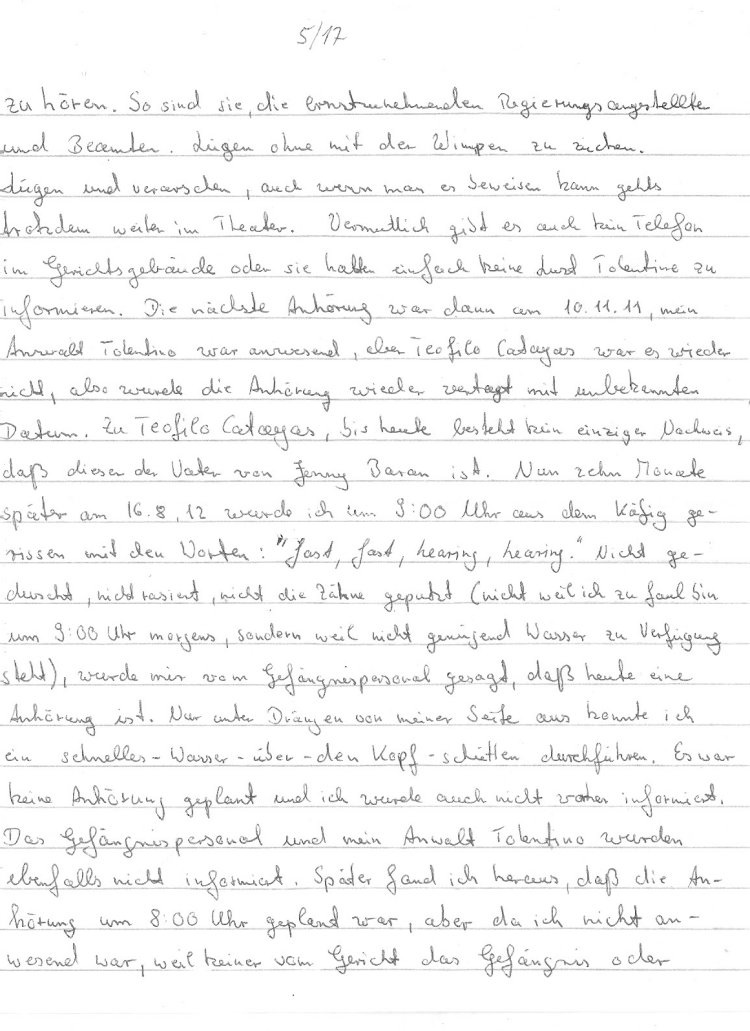 5/17
zu hören. So sind sie, die ernstzunehmenden Regierungsangestellten
und Beamten. Lügen ohne mit den Wimpen zu zucken.
Lügen und verarschen, auch wenn man es beweisen kann gehts
trotzdem weiter im Theater. Vermutlich gibt es auch kein Telefon
im Gerichtsgebäude oder sie hatten einfach keine Lust Tolentino zu
informieren. Die nächste Anhörung war dann am 10.11.11, mein
Anwalt Tolentino war anwesend, aber Teofilo Catagas war es wieder
nicht, also wurde die Anhörung wieder vertagt mit unbekannten
Datum. Zu Teofilo Catagas, bis heute besteht kein einziger Nachweis,
daß dieser der Vater von Jenny Baran ist. Nun zehn Monate
später am 16.8.12 wurde ich um 9:00 Uhr aus dem Käfig ge-
rissen mit den Worten: "fast, fast, hearing, hearing." Nicht ge-
duscht, nicht rasiert, nicht die Zähne geputzt (nicht weil ich zu faul bin
um 9:00 Uhr morgens, sondern weil nicht genügend Wasser zu Verfügung
steht), wurde mir vom Gefängnispersonal gesagt, daß heute eine
Anhörung ist. Nur unter Drängen von meiner Seite aus konnte ich
ein schnelles-Wasser-über-den Kopf-schütten durchführen. Es war
keine Anhörung geplant und ich wurde auch nicht vorher informiert.
Das Gefängnispersonal und mein Anwalt Tolentino wurden
ebenfalls nicht informiert. Später fand ich heraus, daß die An-
hörung um 8:00 Uhr geplant war, aber da ich nicht an-
wesend war, weil keiner vom Gericht das Gefängnis oder